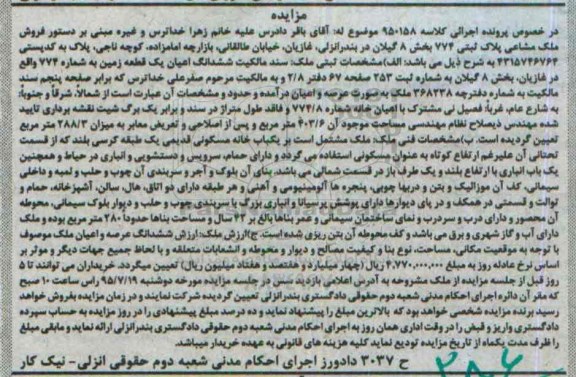 مزایده
در خصوص پرونده اجرائی کلاسه ۹۵۰۱۵۸ موضوع له: آقای باقر دادرس علیه خانم زهرا خداترس و غیره مبنی بر دستور فروش
ملک مشاعی پلاک ثبتی ۷۷۴ بخش ۸ گیلان در بندرانزلی، غازیان، خیابان طالقانی، بازارچه امامزاده، کوچه ناجی، پلاک به کدپستی
۴۳۱۵۷۴۶۷۶۴ به شرح ذیل می باشد: الف)مشخصات ثبتی ملک: سند مالکیت ششدانگ اعیان یک قطعه زمین به شماره ۷۷۴ واقع
در غازیان، بخش ۸ گیلان به شماره ثبت ۲۵۳ صفحه ۶۷ دفتر ۲/۸ و به مالکیت مرحوم صفرعلی خداترس که برابر صفحه پنجم سند
مالکیت به شماره دفترچه ۳۶۸۲۳۸ ملک به صورت عرصه و اعیان درآمده و حدود و مشخصات آن عبارت است از شمالاً، شرقاً و جنوباً:
به شارع عام، غرباً: فصیل نی مشترک با اعیان خانه شماره ۷۷۴/۸ و فاقد طول متراژ در سند و برابر یک برگ شیت نقشه برداری تایید
شده مهندس ذیصلاح نظام مهندسی مساحت موجود آن ۴۰۳/۶ متر مربع و پس از اصلاحی و تعریض معابر به میزان ۲۸۸/۳ متر مربع
تعیین گردیده است. ب)مشخصات فنی ملک: ملک مشتمل است بر یکباب خانه مسکونی قدیمی یک طبقه کرسی بلند که از قسمت
تحتانی آن علیرغم ارتفاع کوتاه به عنوان مسکونی استفاده می گردد و دارای حمام، سرویس و دستشویی و انباری در حیاط و همچنین
یک باب انباری با ارتفاع بلند و یک طرف باز در قسمت شمالی می باشد. بنای آن بلوک و آجر و سربندی آن چوب و حلب و لمبه و داخلی
سیمانی، کف آن موزائیک و بتن و دربها چوبی، پنجره ها آلومینیومی و آهنی و هر طبقه دارای دو اتاق، هال، سالن، آشپزخانه، حمام و
توالت و قسمتی در همکف و در پای دیوارها دارای پوشش پرسیانا و انباری بزرگ با سربندی چوب و حلب و دیوار بلوک سیمانی، محوطه
آن محصور و دارای درب و سردرب و نمای ساختمان سیمانی و عمر بناها بالغ بر ۴۳ سال و مساحت بناها حدوداً ۲۸۰ متر مربع بوده و ملک
دارای آب و گاز شهری و برق می باشد و کف محوطه آن بتن ریزی شده است. ج)ارزش ملک: ارزش ششدانگ عرصه و اعیان ملک موصوف
با توجه به موقعیت مکانی، مساحت، نوع بنا و کیفیت مصالح و دیوار و محوطه و انشعابات متعلقه و با لحاظ جمیع جهات دیگر و موثر بر
اساس نرخ عادله روز به مبلغ ۴,۷۷۰,۰۰۰,۰۰۰ ریال (چهار میلیارد و هفتصد و هفتاد میلیون ریال) تعیین میگردد. خریداران می توانند تا ۵
روز قبل از جلسه مزایده از ملک مشروحه به آدرس اعلامی بازدید سپس در جلسه مزایده مورخه دوشنبه ۹۵/۷/۱۹ راس ساعت ۱۰ صبح
که مقر آن دائره اجرای احکام مدنی شعبه دوم حقوقی دادگستری بندرانزلی تعیین گردیده شرکت نمایند و در زمان مزایده بفروش خواهد
رسید برنده مزایده شخصی خواهد بود که بالاترین مبلغ را پیشنهاد نماید و ده درصد مبلغ پیشنهادی را در روز مزایده به حساب سپرده
دادگستری واریز و قبض را در وقت اداری همان روز به اجرای احکام مدنی شعبه دوم حقوقی دادگستری بندرانزلی ارائه نماید و مابقی مبلغ
را ظرف مدت یکماه از تاریخ مزایده تودیع نماید کلیه هزینه های قانونی به عهده خریدار میباشد.
ح ۳۰۳۷ دادورز اجرای احکام مدنی شعبه دوم حقوقی انزلی- نیک کار